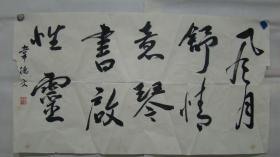 风月
舒情
意琴
書啟
性靈
韋德文